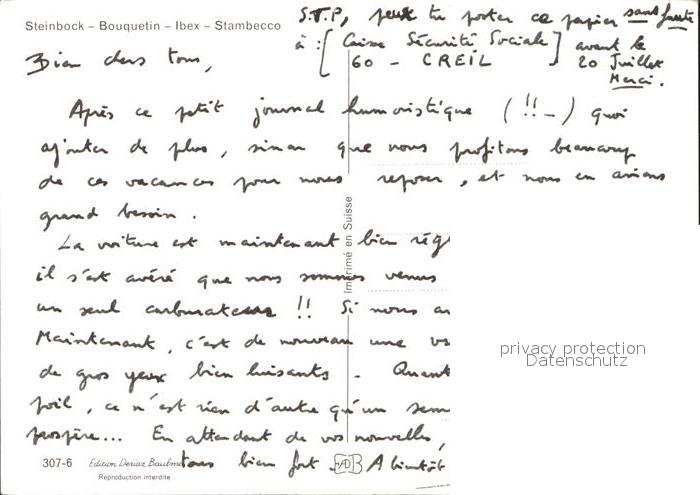 Steinbock – Bouquetin – Ibex – Stambecco
S.T.P, peux tu porter ce papier sans faute
à : [ Caisse Sécurité Sociale ] avant le
60 – CREIL 20 Juillet
Merci.
Bien chers tous,
Après ce petit journal humoristique (!!–) quoi
ajouter de plus, sinon que nous profitons beaucoup
de ces vacances pour nous reposer, et nous en avions
grand besoin.
La voiture est maintenant bien rég
il s'est avéré que nous sommes venus
un seul carburateur !! Si nous
Maintenant, c'est de nouveau une
de gros yeux bien luisants. Quant
poil, ce n'est rien d'autre qu'un
prospère... En attendant de vos nouvelles,
tous bien fort. A bientôt
Imprimé en Suisse
privacy protection
Datenschutz
307-6 Edition Deriaz Baulmes
Reproduction interdite